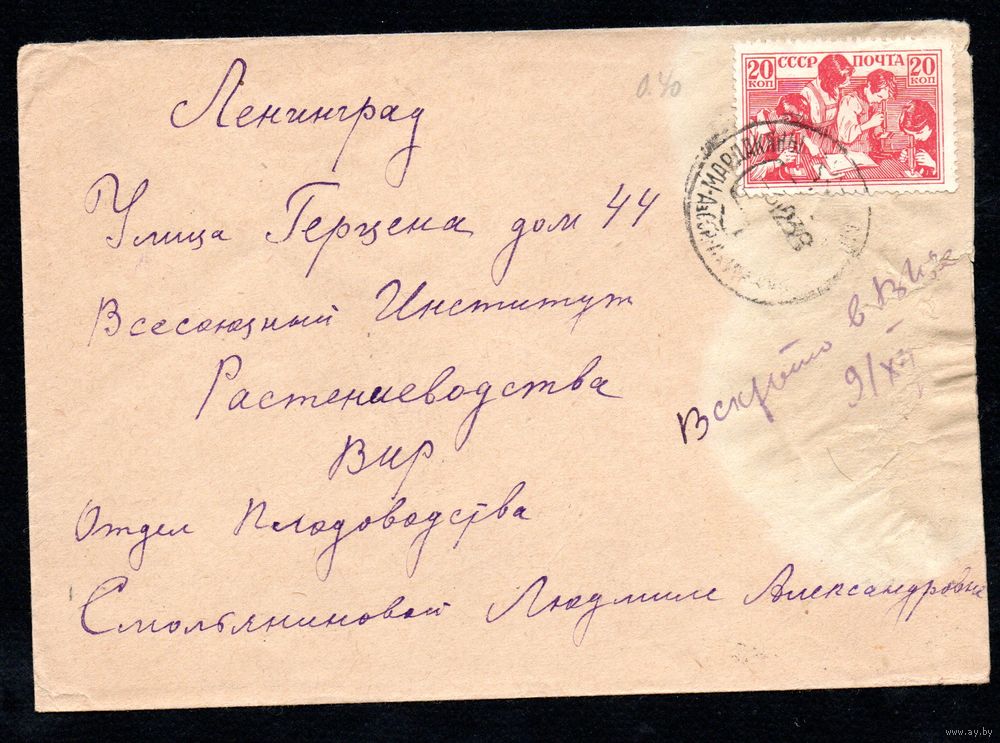 Ленинград
Улица Герцена дом 44
Всесоюзный Институт
Растениеводства
Вир
Отдел Плодоводства
Смольяниновой Людмиле Александровне
Вскрыто в
9/XII
0.40
20 СССР ПОЧТА 20
КОП КОП
МАРДАКЯНЫ
www.ay.by